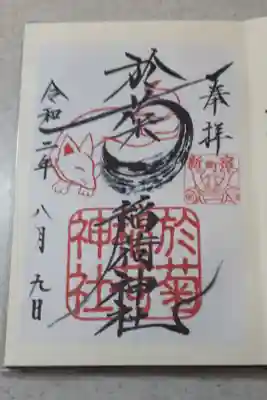 奉拝
新町宿
於菊
稲荷神社
於菊
稲荷
神社
令和二年八月九日